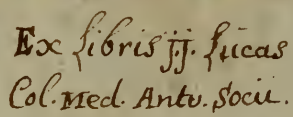 Ex libris j.j. Lucas
Col. Med. Antv. Socii.